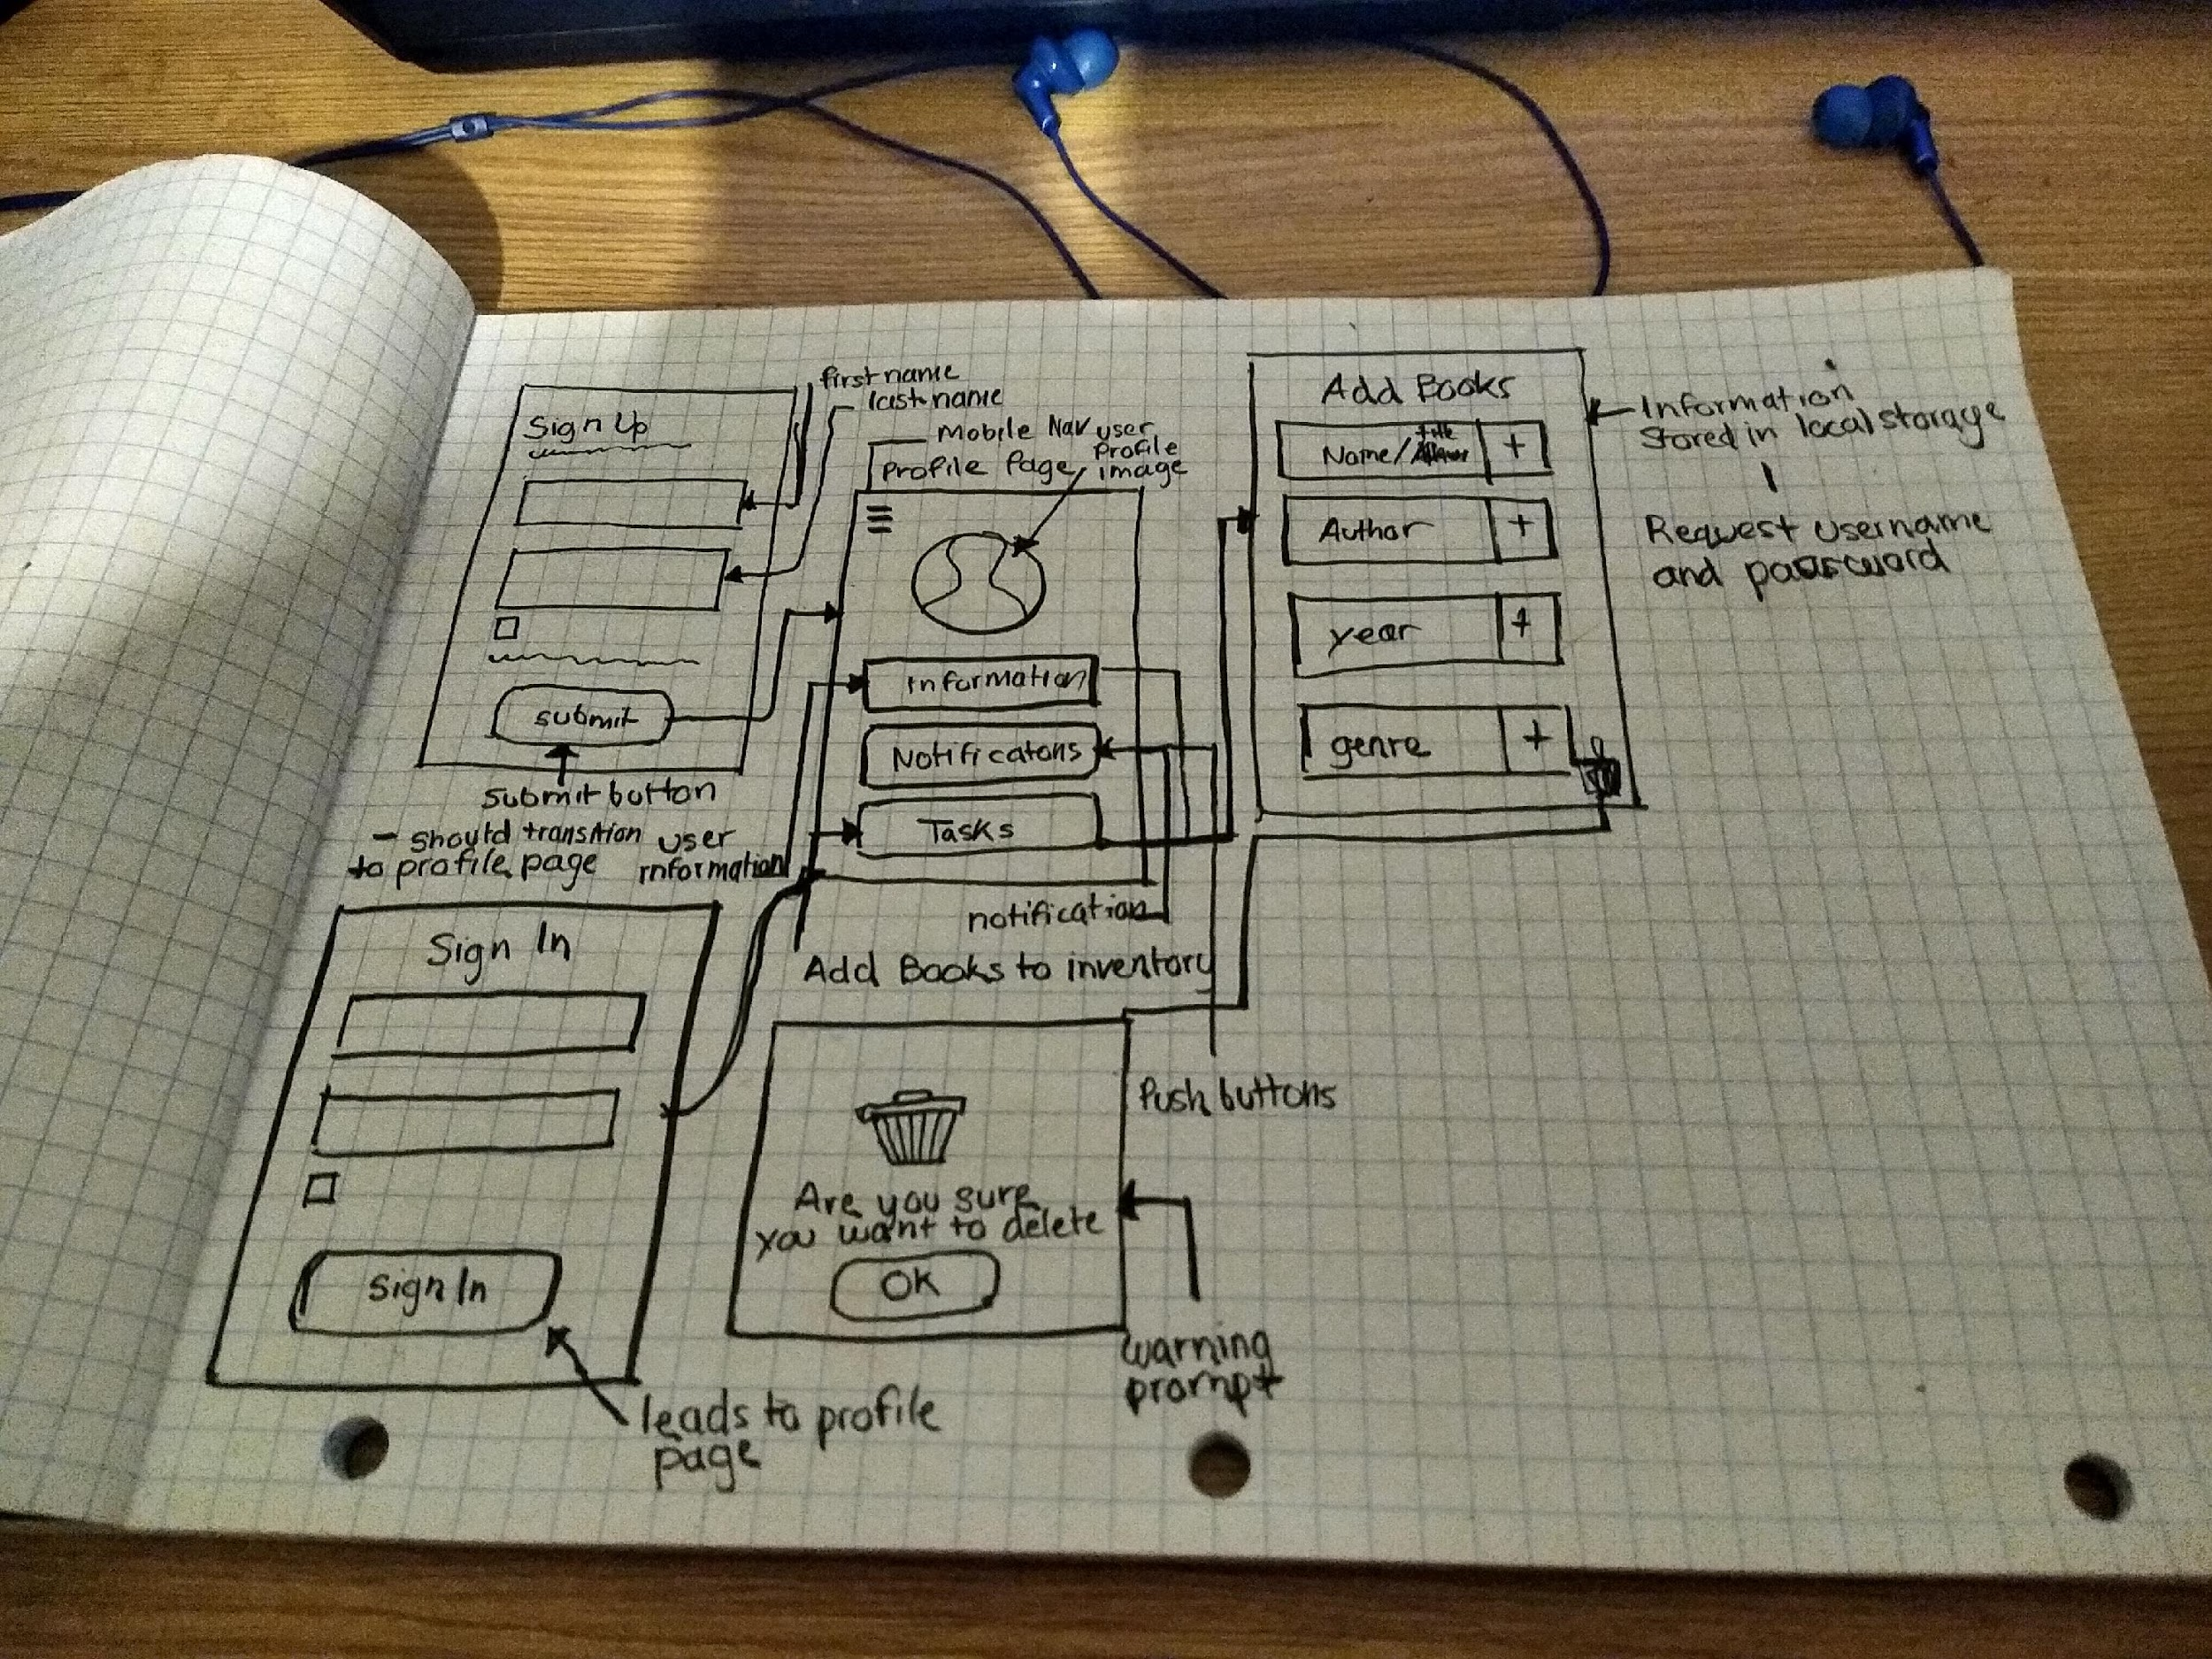 first name
last name
Sign Up
submit
submit button
- should transition
to profile page
Mobile Nav
Profile Page
user
Profile
image
Information
Notificatons
Tasks
user
information
notification
Add Books to inventory
Push buttons
Add Books
Name/ title
Author
year
genre
Information
Stored in local storage
Request username
and password
Sign In
Sign In
leads to profile
page
Are you sure
you want to delete
OK
warning
prompt